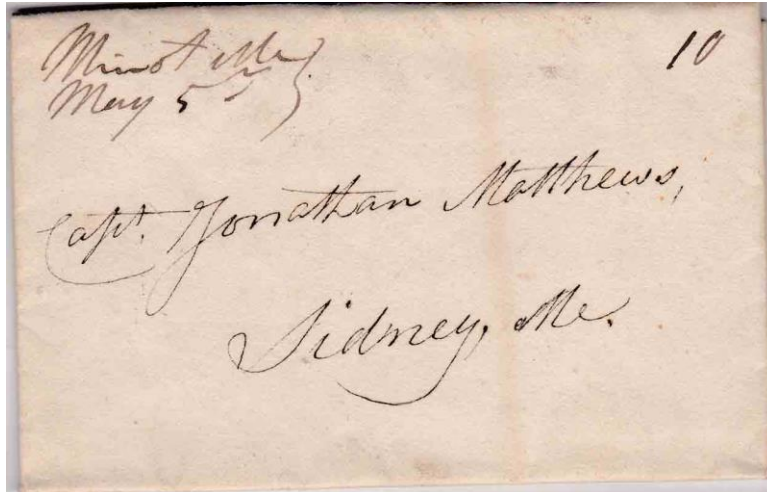 Minot Me
May 5
10
Capt. Jonathan Matthews,
Sidney, Me.